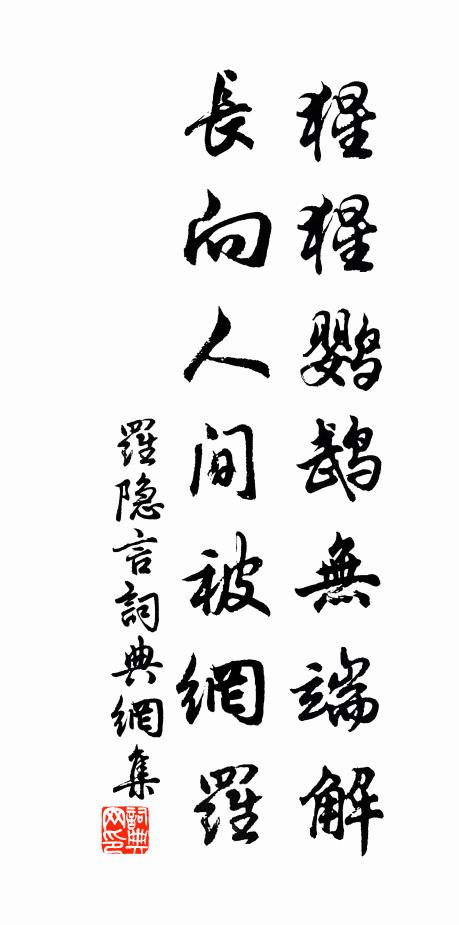 猩猩鹦鹉無端解
長向人間被網羅
羅隐言詞典網集
詞典网印